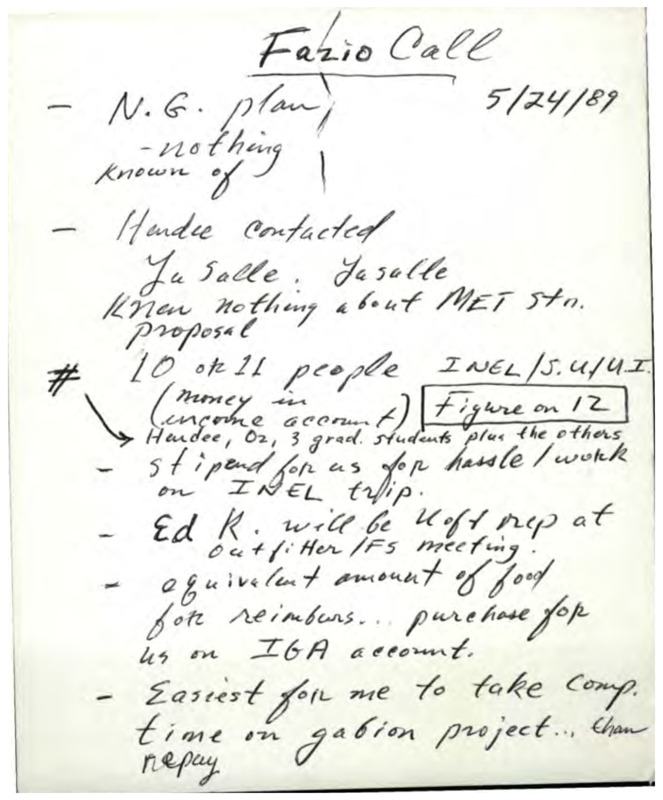 Fazio Call
- N.G. plan 5/24/89
- nothing
known of
- Hendee contacted
LaSalle. Lasalle
Knew nothing about MET stn.
proposal
# 10 or 11 people INEL/S.U/U.I.
(money in
income account) Figure on 12
Hendee, Oz, 3 grad. students plus the others
- stipend for us for hassle/work
on INEL trip.
- Ed K. will be UofI rep at
outfitter/FS meeting.
- equivalent amount of food
for reimburs... purchase for
us on IGA account.
- Easiest for me to take comp.
time on gabion project... than
repay